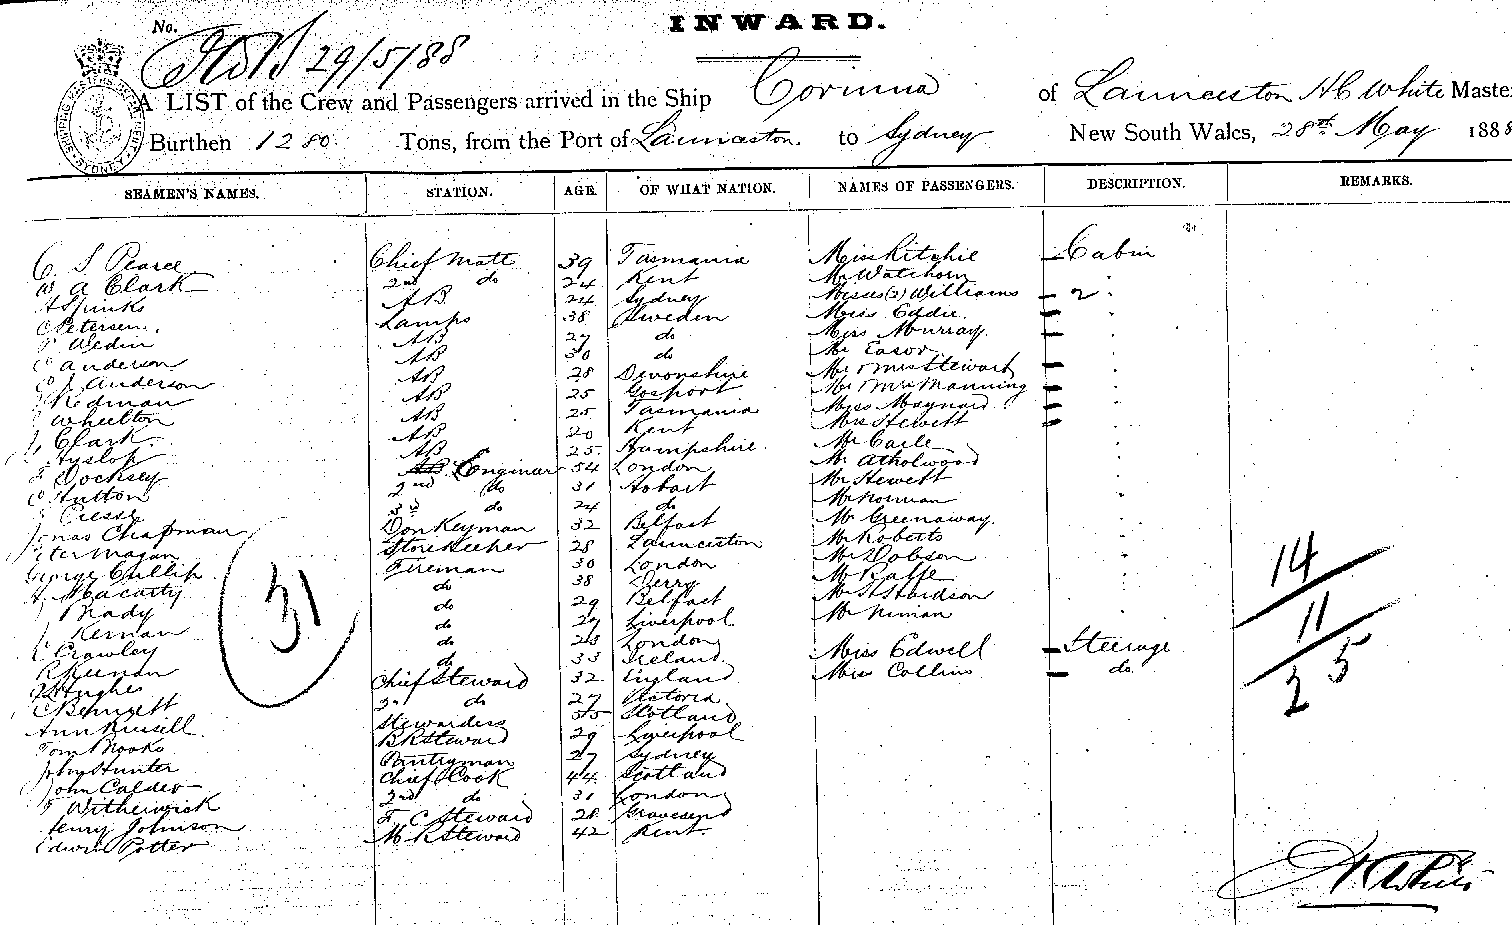 INWARD.
No.
29/5/88
A LIST of the Crew and Passengers arrived in the Ship Corinna of Launceston H C White Master
Burthen 1280 Tons, from the Port of Launceston to Sydney New South Wales, 28th May 1888
SEAMEN'S NAMES. STATION. AGE. OF WHAT NATION. NAMES OF PASSENGERS. DESCRIPTION. REMARKS.
C. S Pearce Chief Mate 39 Tasmania Miss Ritchie Cabin
W A Clark 2nd do 24 Kent Mr Watchorn
A Spinks AB 24 Sydney Misses (2) Williams 2
C Petersen Lamps 38 Sweden Miss Eddie
Wedin AB 27 do Miss Murray
C Anderson AB 30 do Mr Eason
C J Anderson AB 28 Devonshire Mr & Mrs Stewart
Redman AB 25 Gosport Mr & Mrs Manning
Wheelton AB 25 Tasmania Miss Maynard
J. Clark AB 20 Kent Mrs Hewett
Hyslop AB 25 Hampshire Mr Caile
Docksey Engineer 54 London Mr Atholwood
Hutton 2nd do 31 Hobart Mr Hewett
Cresse 3rd do 24 do Mr Norman
Jonas Chapman Donkeyman 32 Belfast Mr Greenaway
Peter Magan Storekeeper 28 Launceston Mr Roberts
George Cullip Fireman 30 London Mr Dobson
Macarty do 38 Derry Mr Raffe
Brady do 29 Belfast Mr H Hardson
Kernan do 27 Liverpool Mr Niman
C Crawley do 28 London Miss Edwell Steerage
R Keenan do 33 Ireland Miss Collins do
Hughes Chief Steward 32 England
C Bennett 2nd do 27 Victoria
Ann Russell Stewardess 55 Scotland
Tom Brooks BR Steward 29 Liverpool
John Hunter Pantryman 27 Sydney
John Calder Chief Cook 44 Scotland
Witherwick 2nd do 31 London
Henry Johnson F. C Steward 28 Gravesend
Edwin Potter M R Steward 42 Kent
31
14
11
25
H C White